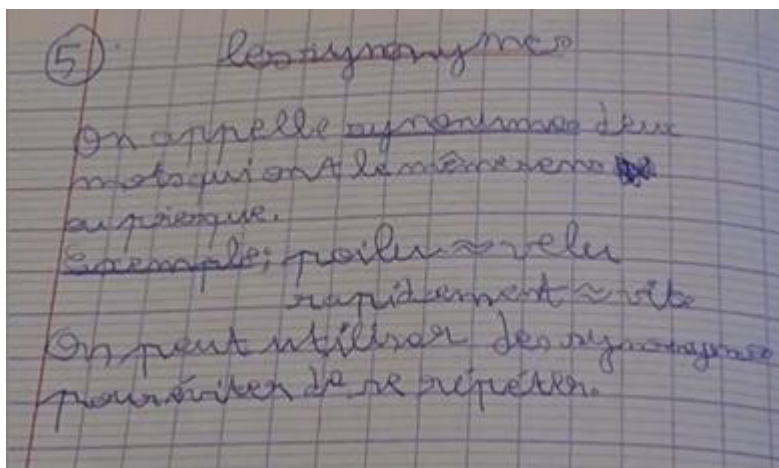 5 Les synonymes
On appelle synonimes deux
mots qui ont le même sens
ou presque.
Exemple : poilu ≈ velu
rapidement ≈ vite
On peut utiliser des synonymes
pour éviter de se répéter.